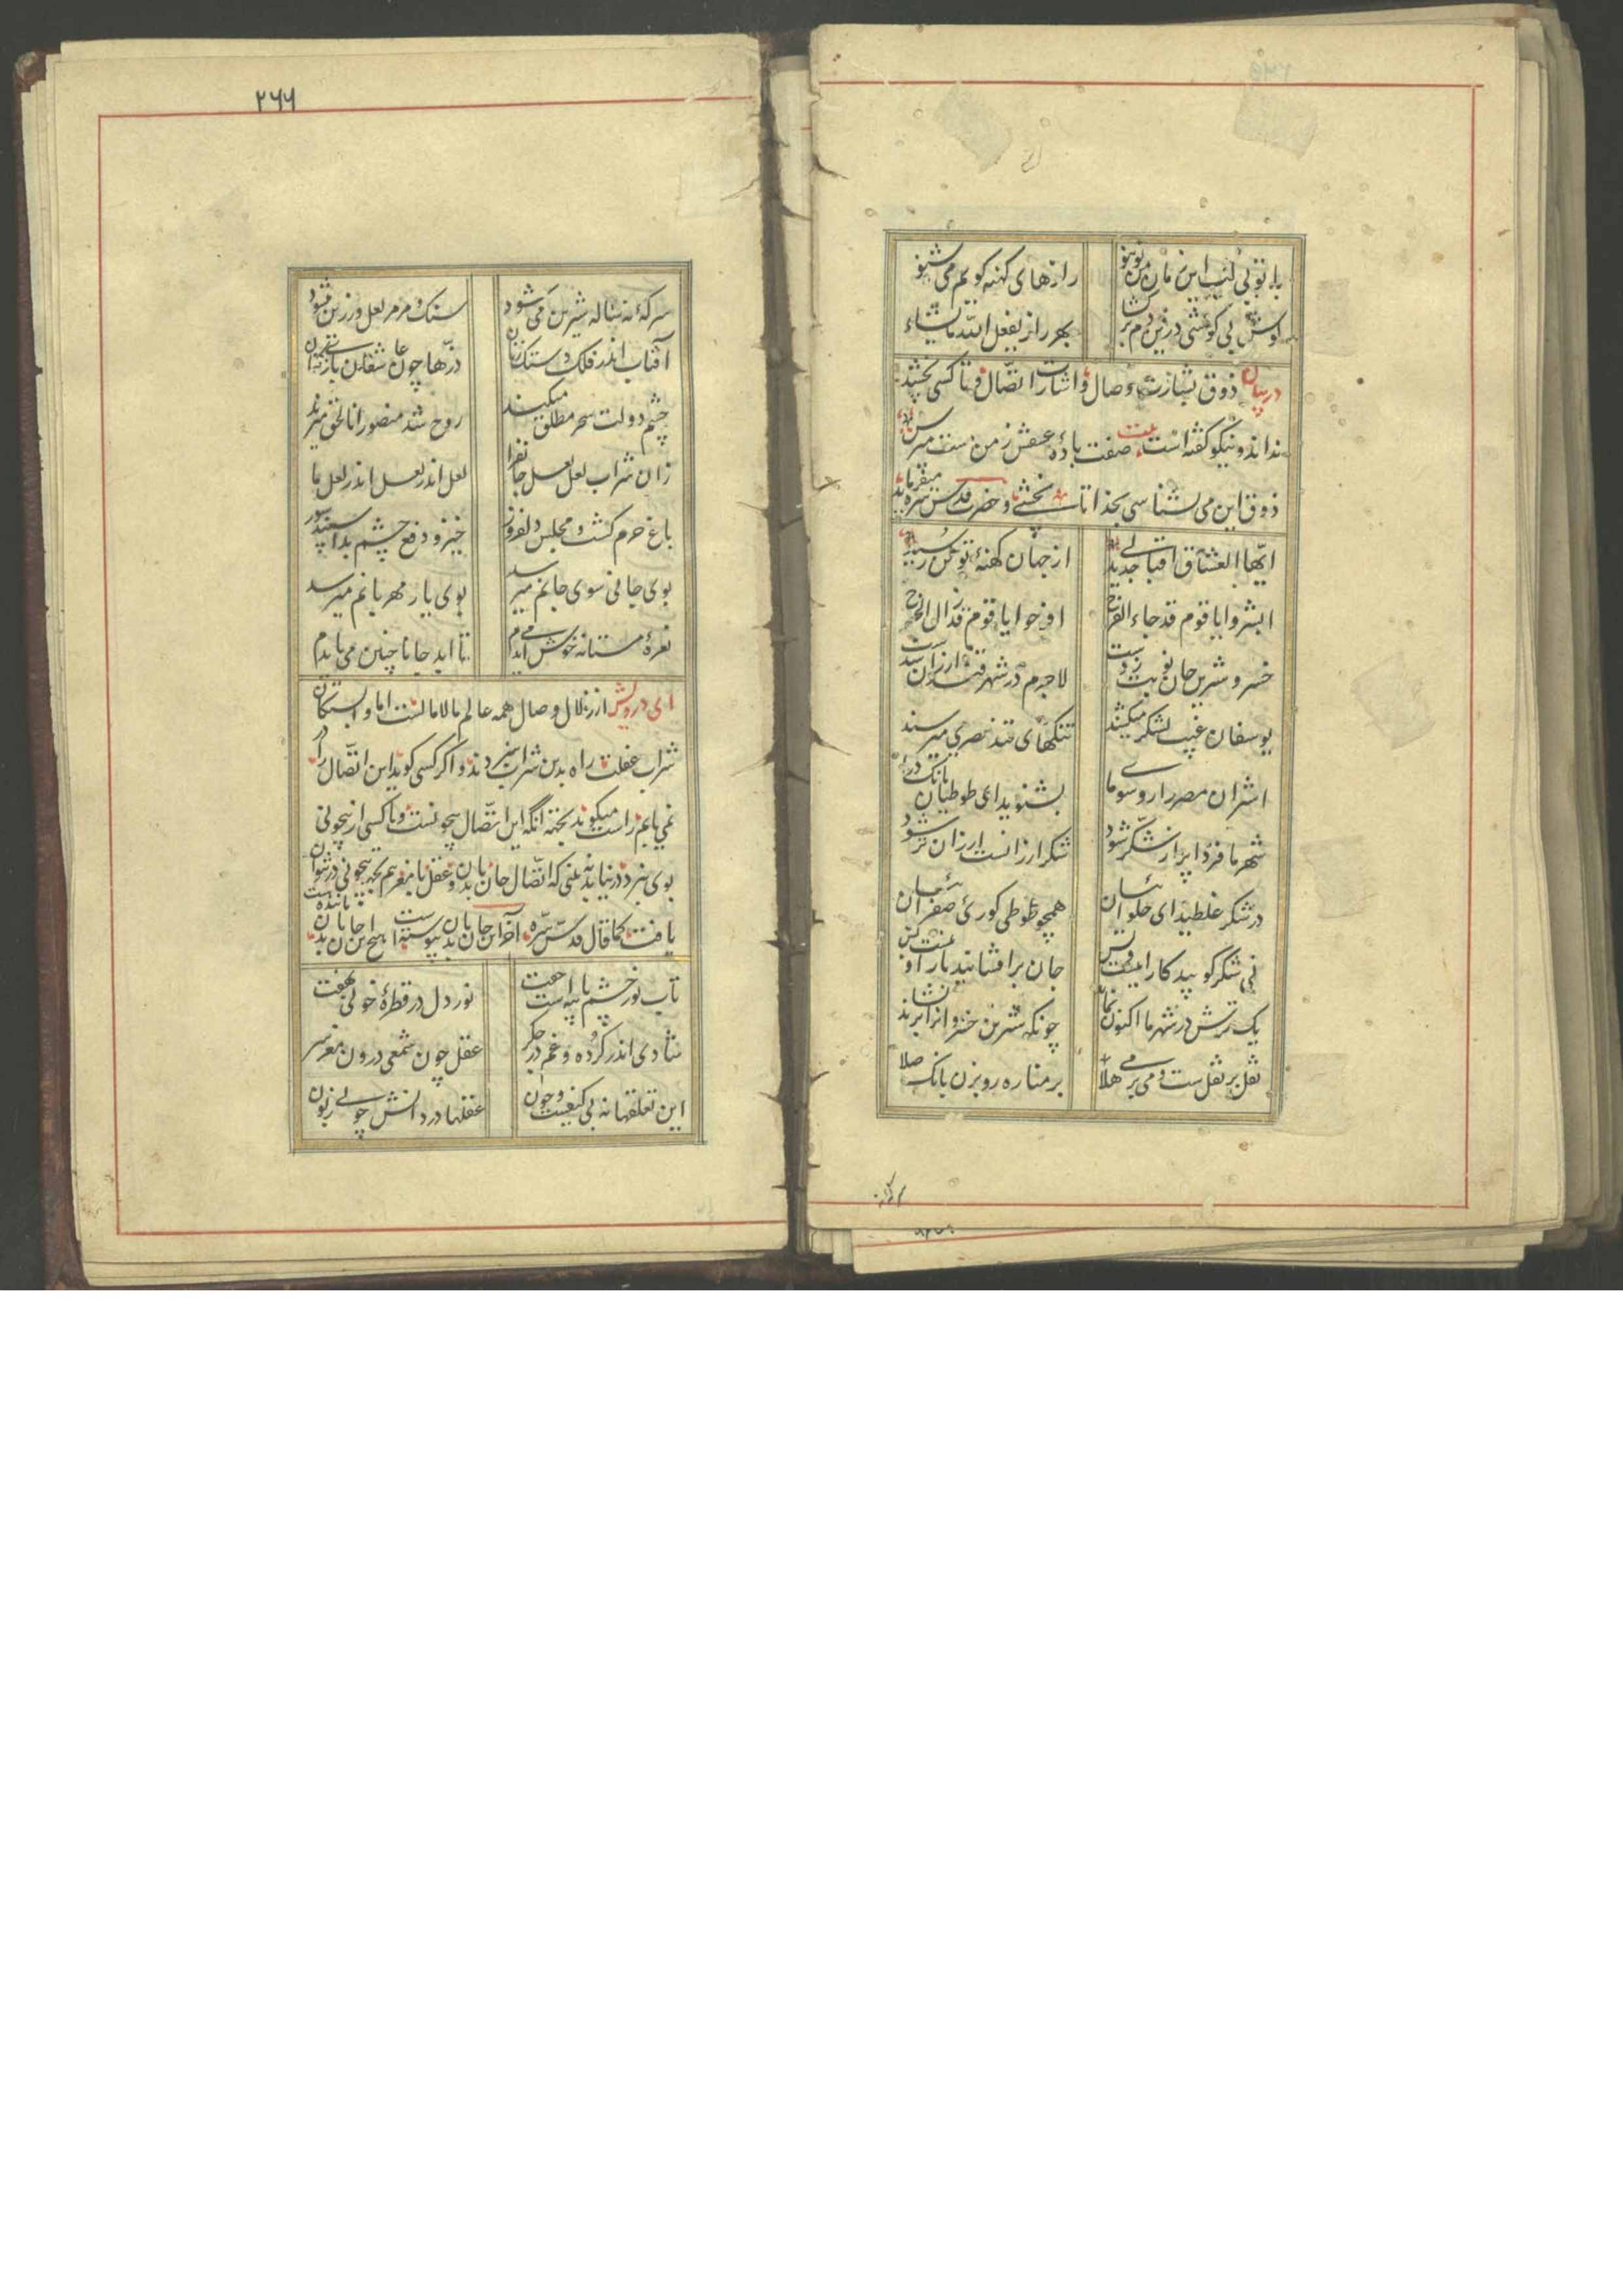 با تو بی لب این زمان من نو بنو رازهای کهنه گویم می شنو
گوش بی گوشی درین دم برگشا بهر راز یفعل الله ما یشاء
در بیان ذوق بشارت وصال و اشارت اتصال و تا کسی نچشد
نداند و نیکو گفته است بیت صفت باده عشقش ز من مست مپرس
ذوق این می نشناسی بخدا تا نچشی و حضرت قدس سره میفرماید
ایها العشاق اقبالی جدید از جهان کهنهٔ نوکن رسید
ابشروا یا قوم قد جاء الفرج افرحوا یا قوم قد زال الحرج
خسرو شیرین جان نوبت زدست لاجرم در شهر قند ارزان شدست
یوسفان غیب لشکر میکشند تنگهای قند مصری میرسند
اشتران مصر را رو سوی ما بشنوید ای طوطیان بانگ درا
شهر ما فردا پر از شکر شود شکر ارزانست ارزان تر شود
در شکر غلطید ای حلوائیان همچو طوطی کوری صفرائیان
نی شکر کوبید کار اینست و بس جان برافشانید یار اینست و بس
یک ترش در شهر ما اکنون نماند چونکه شیرین خسروان را بر نشاند
نقل بر نقل ست و می بر می هلا بر مناره رو بزن بانگ صلا
۲۶۶
سرکهٔ نه ساله شیرین می شود سنگ و مرمر لعل و زرین میشود
آفتاب اندر فلک دستک زنان ذرها چون عاشقان بازی کنان
چشم دولت سحر مطلق میکند روح شد منصور انا الحق میزند
زان شراب لعل لعل جانفزا لعل اندر لعل اندر لعل ما
باغ خرم گشت و مجلس دلفروز خیز و دفع چشم بد اسپند سوز
بوی جانی سوی جانم میرسد بوی یار مهربانم میرسد
نعرهٔ مستانه خوش می آیدم تا ابد جانا چنین می بایدم
ای درویش از زلال وصال همه عالم مالامالست اما وابستگان
شراب غفلت راه بدین شراب نبردند و اگر کسی گوید این اتصال را در
نمی یابم راست میگوید بجهة آنکه این اتصال بیچونست و تا کسی از بیچونی
بوی نبرد در نیابد نه بینی که اتصال جان با بدن و عقل با مغز هم بجهة بیچونی در نتوان
یافت کما قال قدس سره آخر این جان با بدن پیوسته است هیچ این جان با بدن مانند هست
تاب نور چشم با پیه است جفت نور دل در قطرهٔ خونی نهفت
شادی اندر گرده و غم در جگر عقل چون شمعی درون مغز سر
این تعلقها نه بی کیفست و چون عقلها در دانش چونی زبون